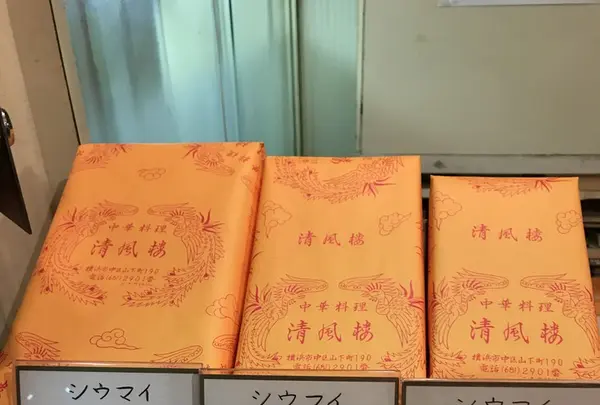 中華料理
清風楼
横浜市中区山下町190
電話(681)2901番
清風楼
中華料理
清風楼
横浜市中区山下町190
電話(681)2901番
清風楼
中華料理
清風楼
横浜市中区山下町190
電話(681)2901番
シウマイ
シウマイ